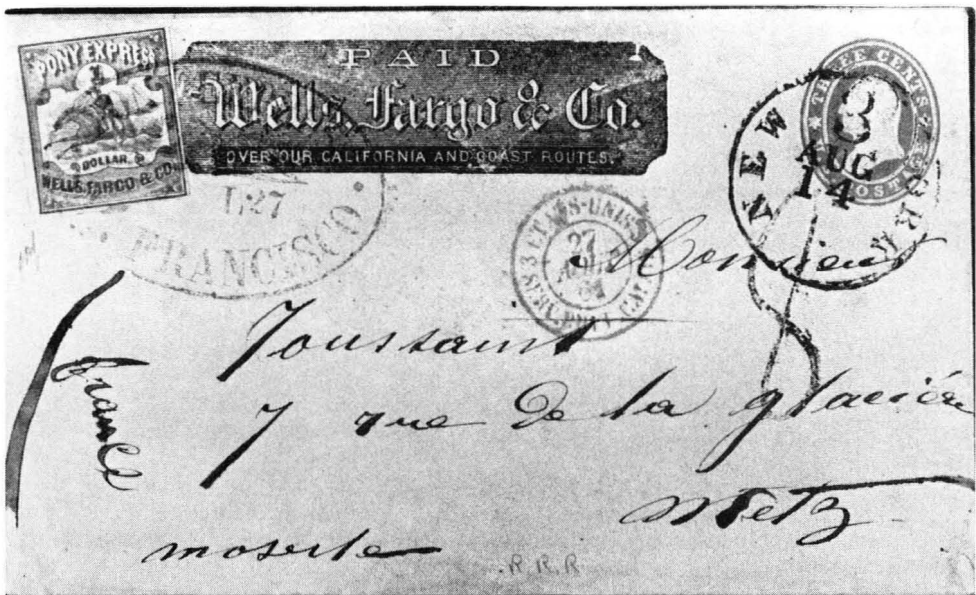 PONY EXPRESS
1
DOLLAR.
WELLS, FARGO & CO.
PAID
Wells, Fargo & Co.
OVER OUR CALIFORNIA AND COAST ROUTES.
THREE CENTS
POSTAGE
NEW
3
AUG
14
FRANCISCO
3 ETATS-UNIS
27
61
Monsieur
Toussaint
7 rue De la glacière
Metz
moselle
france
8
R R R